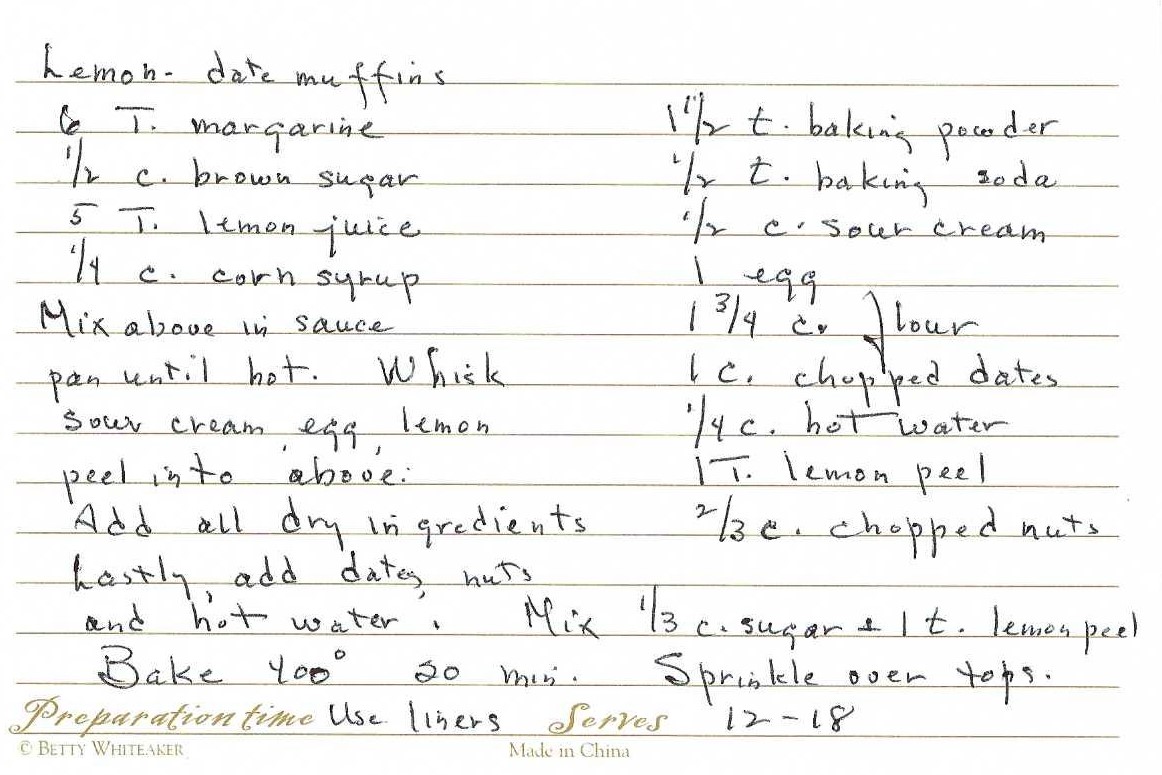 Lemon-date muffins
6 T. margarine
1/2 c. brown sugar
5 T. lemon juice
1/4 c. corn syrup
Mix above in sauce
pan until hot. Whisk
sour cream, egg, lemon
peel into above.
Add all dry ingredients
Lastly, add dates, nuts
and hot water.
Bake 400° 20 min.
1 1/2 t. baking powder
1/2 t. baking soda
1/2 c. sour cream
1 egg
1 3/4 c. flour
1 c. chopped dates
1/4 c. hot water
1 T. lemon peel
2/3 c. chopped nuts
Mix 1/3 c. sugar & 1 t. lemon peel
Sprinkle over tops.
Preparation time Use liners Serves 12-18
© BETTY WHITEAKER Made in China